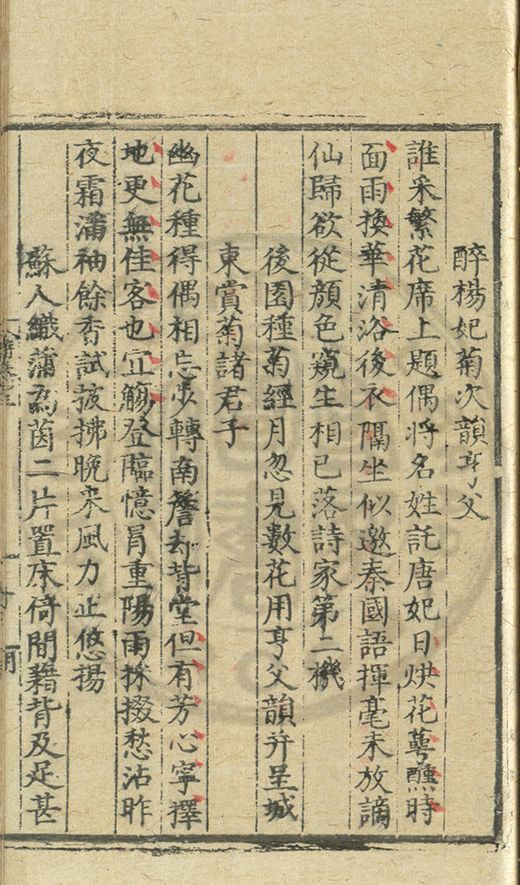 醉楊妃菊次韻亨父
誰采繁花席上題偶將名姓託唐妃日烘花萼醺時
面雨換華清浴後衣隔坐似邀秦國語揮毫未放謫
仙歸欲從顔色窺生相已落詩家第二機
後園種菊經月忽見數花用亨父韻并呈城
東賞菊諸君子
幽花種得偶相忘步轉南簷却背堂但有芳心寧擇
地更無佳客也宜觴登臨憶冐重陽雨採掇愁沾昨
夜霜滿袖餘香試披拂晩來風力正悠揚
蘇人織蒲為茵二片置床倚間藉背及足甚